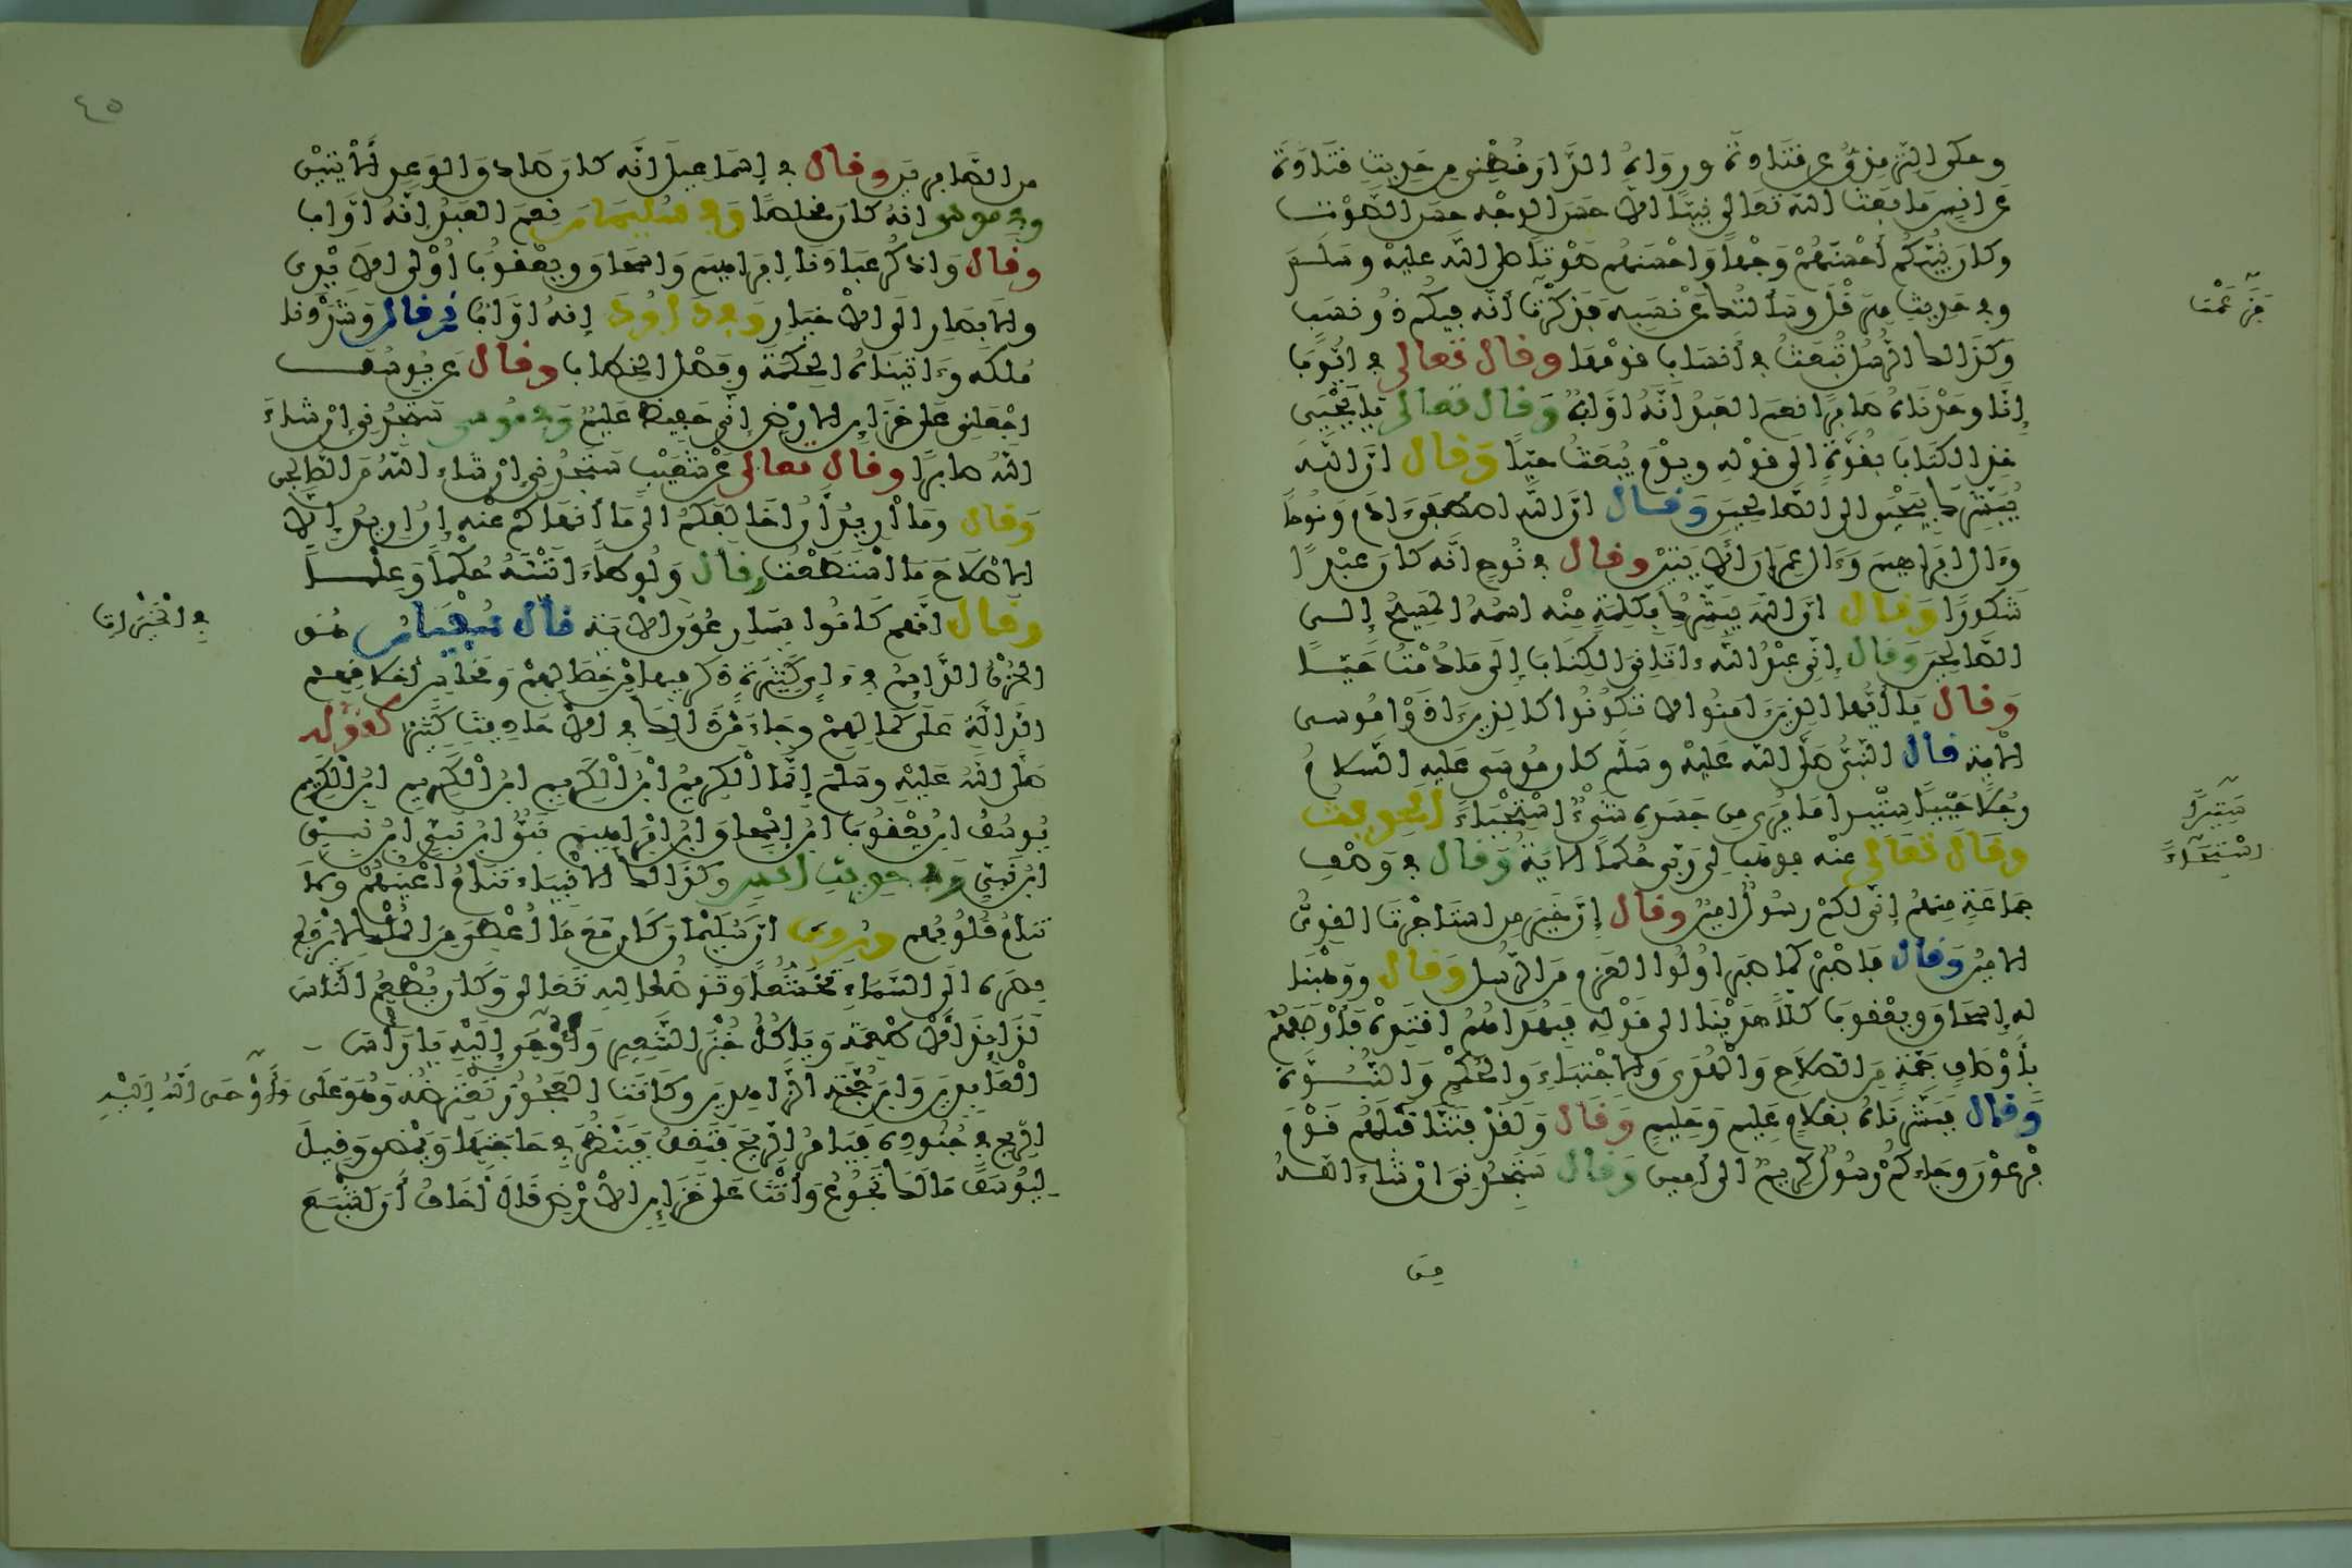 وحكى الترمذي عن قتادة ورواه الدارقطني من حديث قتادة
عن انس ما بعث الله تعالى نبيا الا حسن الوجه حسن الصوت
وكان نبيكم أحسنهم وجها وأحسنهم صوتا صلى الله عليه وسلم
وفي حديث هرقل وسألتك عن نسبه فذكرت أنه فيكم ذو نسب
فزعمت
وكذلك الرسل تبعث في أنساب قومها وقال تعالى في ايوب
إنا وجدناه صابرا نعم العبد انه اواب وقال تعالى يا يحيى
خذ الكتاب بقوة الى قوله ويوم يبعث حيا وقال ان الله
يبشرك بيحيى الى الصالحين وقال ان الله اصطفى ءادم ونوحا
وءال ابراهيم وءال عمران الايتين وقال في نوح انه كان عبدا
شكورا وقال ان الله يبشرك بكلمة منه اسمه المسيح إلى
الصالحين وقال إني عبد الله ءاتاني الكتاب إلى ما دمت حيا
وقال يا أيها الذين ءامنوا لا تكونوا كالذين ءاذوا موسى
الاية قال النبي صلى الله عليه وسلم كان موسى عليه السلام
رجلا حييا ستيرا ما يرى من جسده شيء استحياء الحديث
ستيرا
استحياء
وقال تعالى عنه فوهب لي ربي حكما الاية وقال في وصف
جماعة منهم إني لكم رسول امين وقال إن خير من استاجرت القوي
الامين وقال فاصبر كما صبر اولوا العزم من الرسل وقال ووهبنا
له إسحاق ويعقوب كلا هدينا الى قوله فبهداهم اقتده فوصفهم
بأوصاف جمة من الصلاح والهدى والاجتباء والحكم والنبوة
وقال فبشرناه بغلام عليم وحليم وقال ولقد فتنا قبلهم قوم
فرعون وجاءكم رسول كريم الى أمين وقال ستجدني ان شاء الله
من
٤٥
من الصابرين وقال في إسماعيل انه كان صادق الوعد الأيتين
وفي موسى انه كان مخلصا وفي سليمان نعم العبد إنه اواب
وقال واذكر عبادنا إبراهيم واسحاق ويعقوب اولي الايدي
والابصار الى الاخيار وفي داوود إنه اواب ثم قال وشددنا
ملكه وءاتيناه الحكمة وفصل الخطاب وقال عن يوسف
اجعلني على خزائن الارض إني حفيظ عليم وفي موسى ستجدني إن شاء
الله صابرا وقال تعالى عن شعيب ستجدني إن شاء الله من الصالحين
وقال وما أريد أن اخالفكم الى ما أنهاكم عنه إن اريد إلا
الاصلاح ما استطعت وقال ولوطا ءاتيناه حكما وعلما
وقال انهم كانوا يسارعون الاية قال سفيان هو
في الخيرات
الحزن الدائم في ءاي كثيرة ذكر فيها من خصالهم ومحاسن أخلاقهم
الدالة على كمالهم وجاء من ذلك في الاحاديث كثير كقوله
صلى الله عليه وسلم إنما الكريم ابن الكريم ابن الكريم ابن الكريم
يوسف ابن يعقوب ابن اسحاق ابن ابراهيم نبي ابن نبي ابن نبي
ابن نبي وفي حديث انس وكذلك الانبياء تنام أعينهم ولا
تنام قلوبهم وروي ان سليمان كان مع ما أعطي من الملك لا يرفع
بصره الى السماء تخشعا وتواضعا لله تعالى وكان يطعم الناس
لذائذ الاطعمة وياكل خبز الشعير وأوحي إليه يا رأس
العابدين وابن محجة الزاهدين وكانت العجوز تعترضه وهو على
وأوحى الله إليه
الريح في جنوده فيامر الريح فتقف فينظر في حاجتها ويمضي وقيل
ليوسف ما لك تجوع وأنت على خزائن الارض قال أخاف أن اشبع